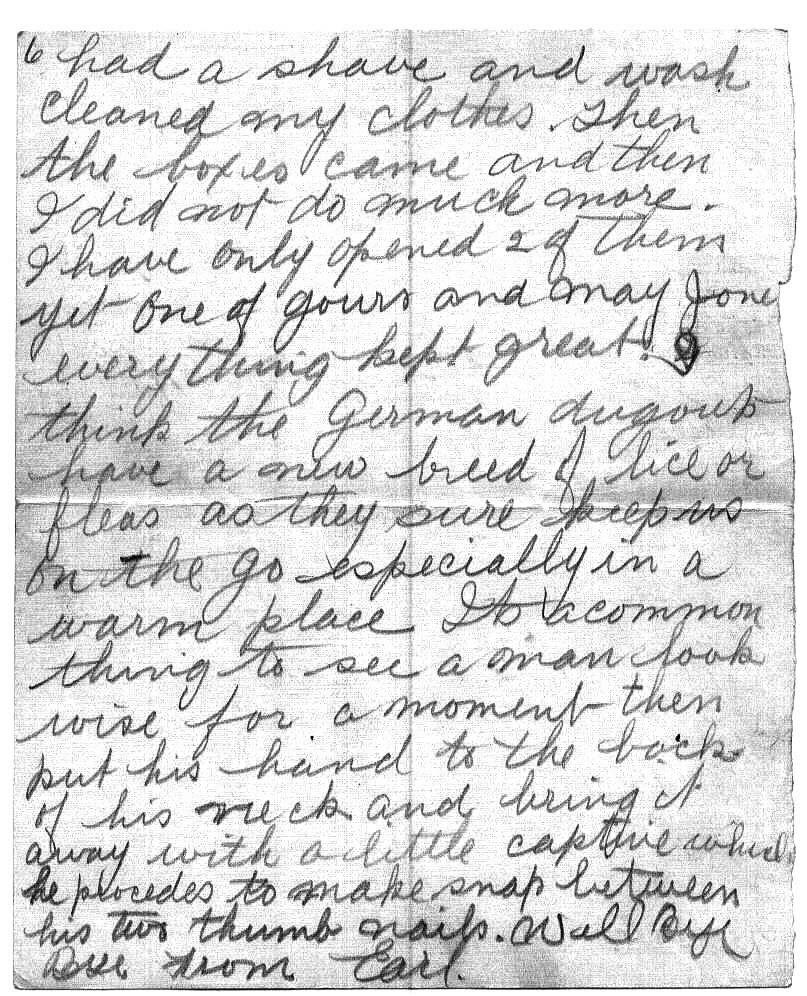 6 had a shave and wash
cleaned my clothes. Then
the boxes came and then
I did not do much more.
I have only opened 2 of them
yet One of yours and may Jone
everything kept great. I
think the German dugouts
have a new breed of lice or
fleas as they sure keep us
on the go especially in a
warm place Its a common
thing to see a man look
wise for a moment then
put his hand to the back
of his neck and bring it
away with a little captive which
he procedes to make snap between
his two thumb nails. Well Bye
Bye from Earl.